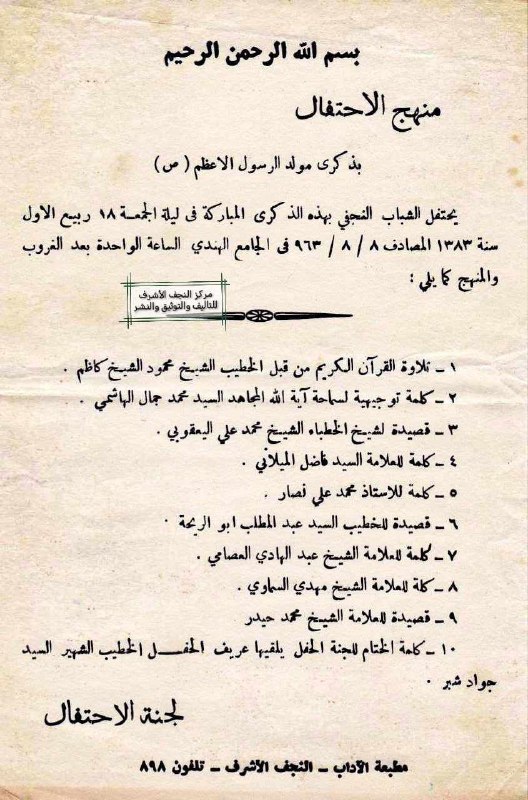 بسم الله الرحمن الرحيم
منهج الاحتفال
بذكرى مولد الرسول الاعظم ( ص )
يحتفل الشباب النجفي بهذه الذكرى المباركة فى ليلة الجمعـة ١٨ ربيع الاول
سنة ١٣٨٣ المصادف ٨ / ٨ / ٩٦٣ فى الجامع الهندي الساعة الواحدة بعد الغروب
والمنهج كما يلي :
مركز النجف الأشرف
للتأليف والتوثيق والنشر
١ ـ تلاوة القرآن الكريم من قبل الخطيب الشيخ محمود الشيخ كاظم .
٢ ـ كلمة توجيهية لسماحة آية الله المجاهد السيد محمد جمال الهاشمي .
٣ ـ قصيدة لشيخ الخطباء الشيخ محمد علي اليعقوبي .
٤ ـ كلمة للعلامة السيد فاضل الميلاني .
٥ ـ كلمة للاستاذ محمد علي نصار .
٦ ـ قصيدة للخطيب السيد عبد المطلب ابو الريحة .
٧ ـ كلمة للعلامة الشيخ عبد الهادي العصامي .
٨ ـ كلة للعلامة الشيخ مهدي السماوي .
٩ ـ قصيدة للعلامة الشيخ محمد حيدر
١٠ ـ كلمة الختام للجنة الحفل يلقيها عريف الحفـــل الخطيب الشهير السيد
جواد شبر .
لجنة الاحتفال
مطبعة الآداب ـ النجف الأشرف ـ تلفون ٨٩٨